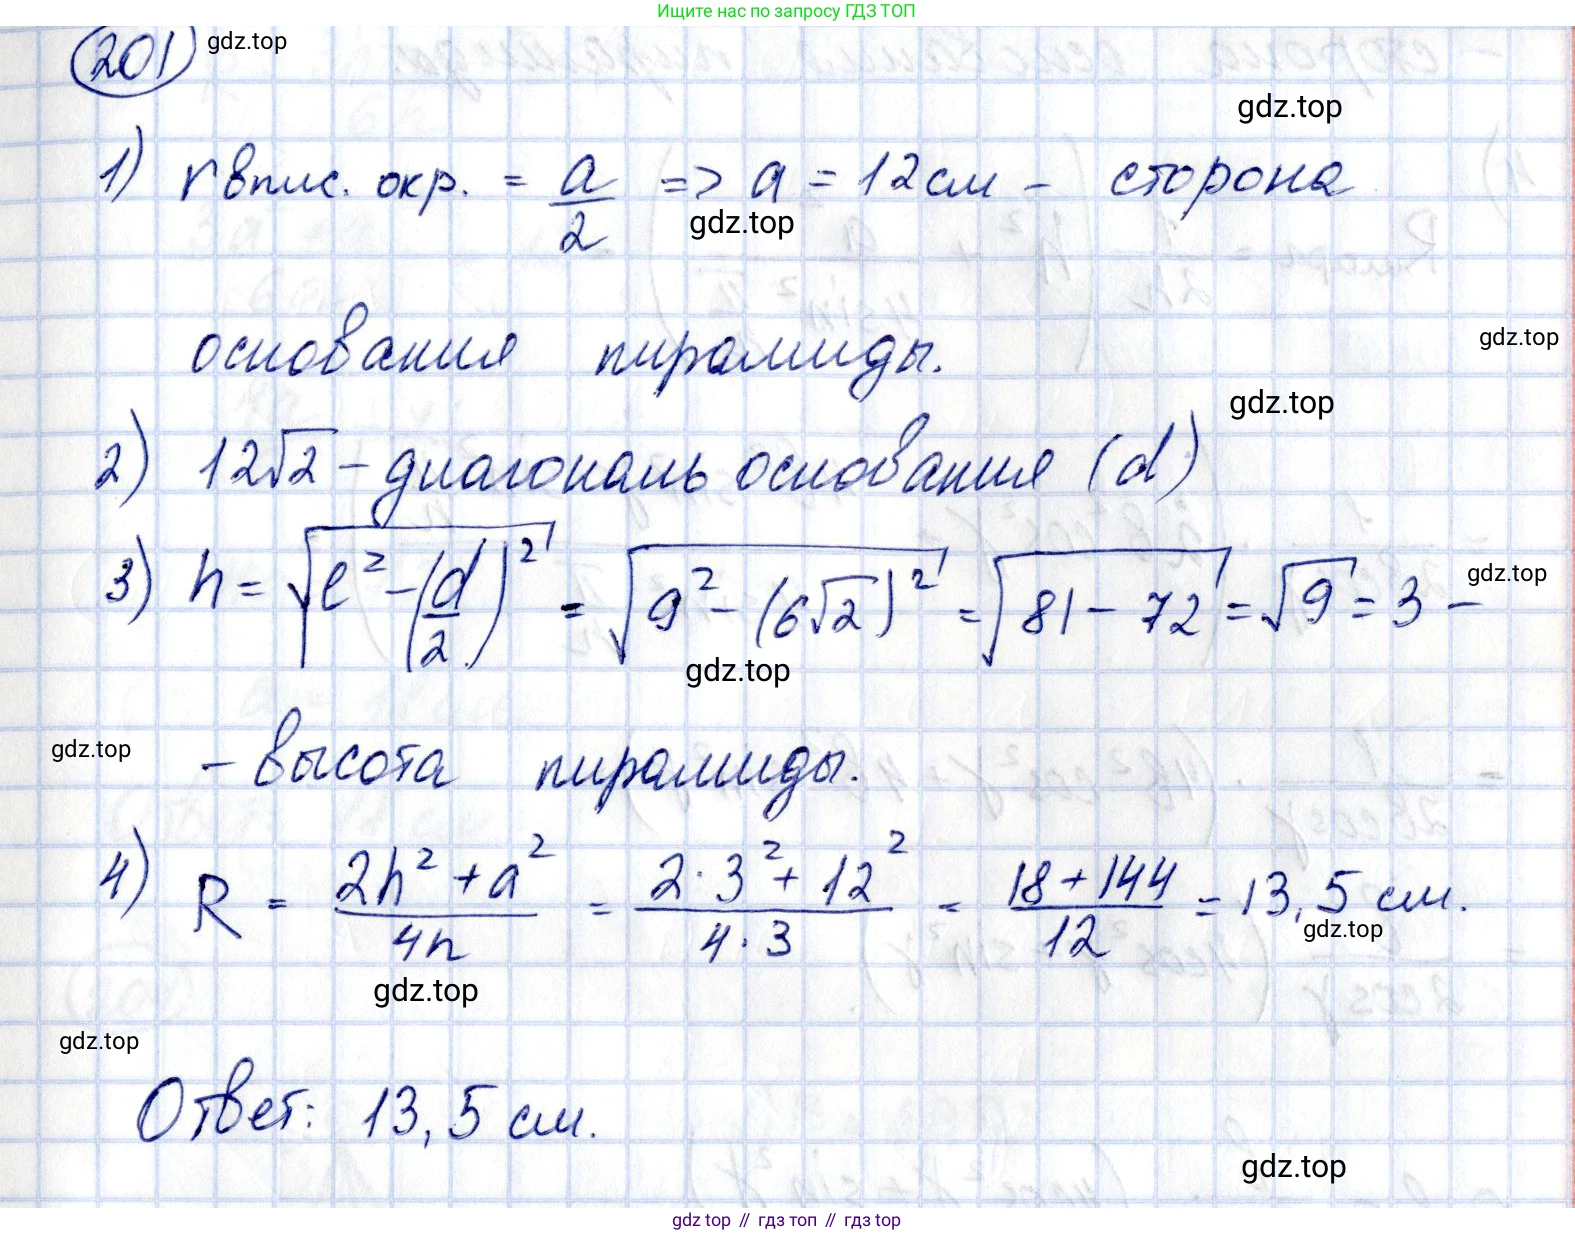 Ищите нас по запросу ГДЗ ТОП
201 gdz.top
gdz.top
1) r впис. окр. = a/2 => a = 12 см – сторона
gdz.top
основания пирамиды.
gdz.top
gdz.top
2) 12√2 – диагональ основания (d)
3) h = √(l² – (d/2)²) = √(9² – (6√2)²) = √(81 – 72) = √9 = 3 –
gdz.top
gdz.top
– высота пирамиды.
gdz.top
4) R = (2h² + a²)/4h = (2·3² + 12²)/(4·3) = (18 + 144)/12 = 13,5 см.
gdz.top
gdz.top
gdz.top
Ответ: 13,5 см.
gdz.top
gdz top // гдз топ // гдз top